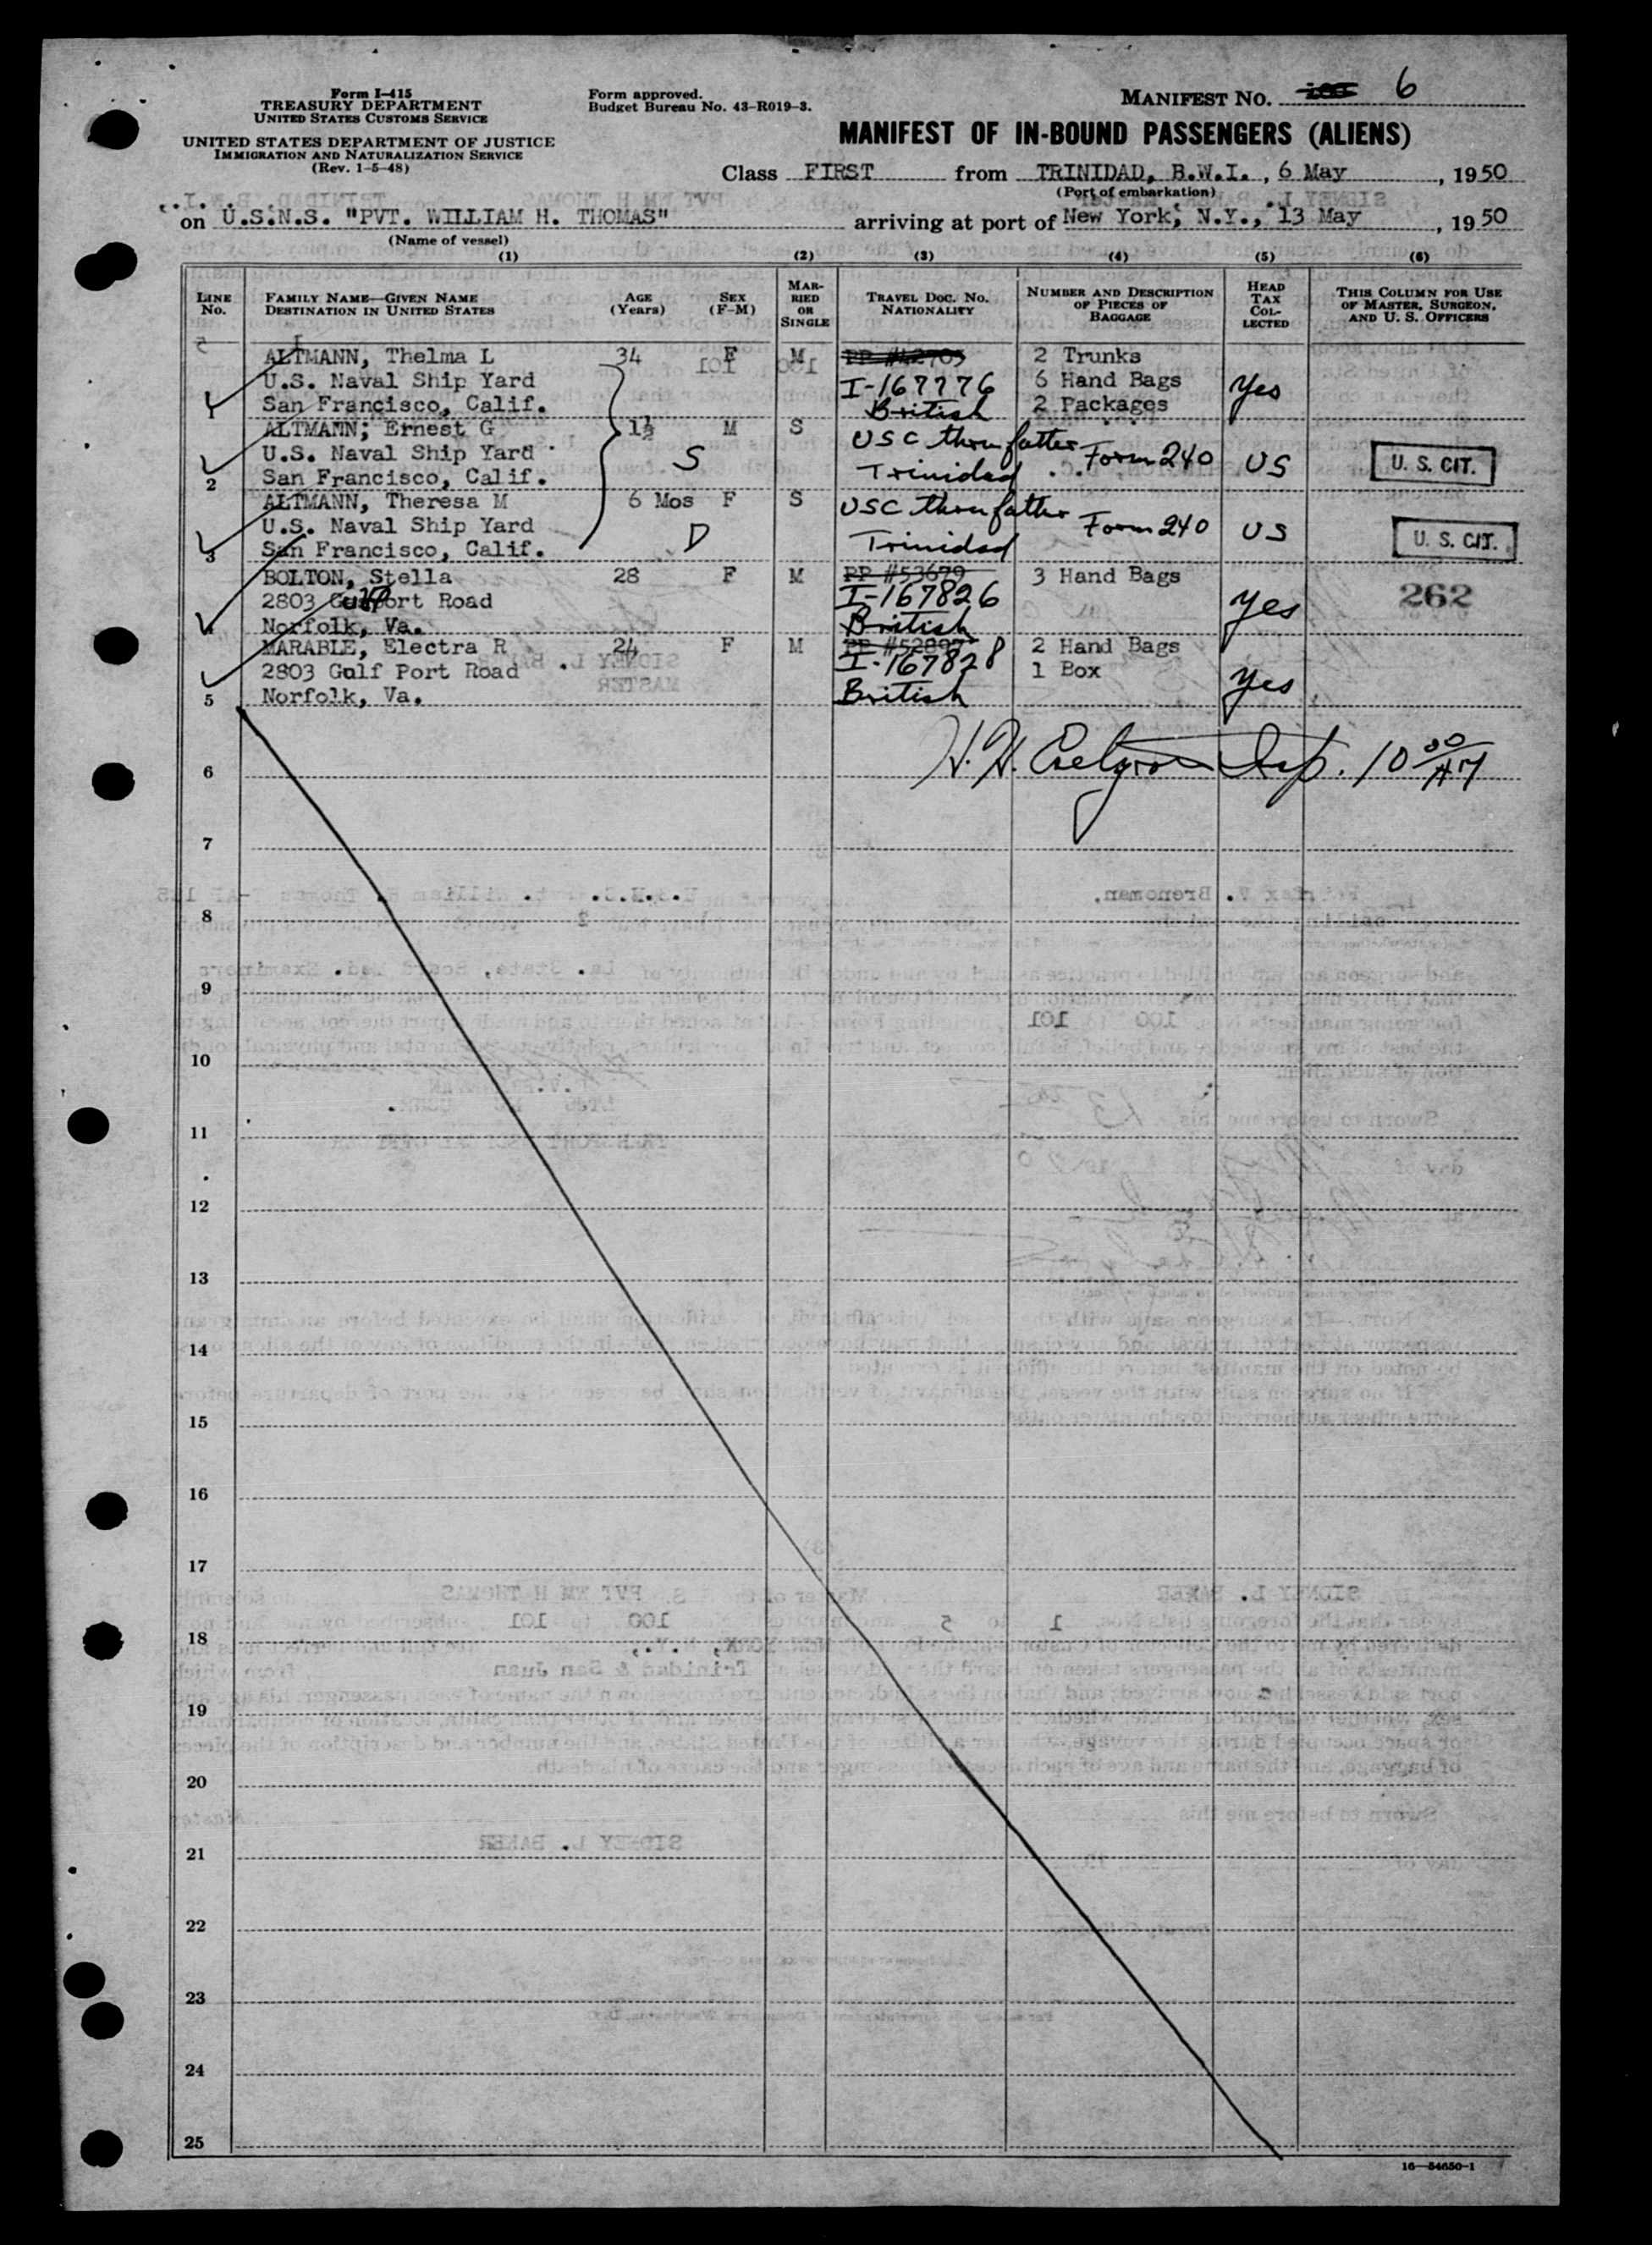 Form I-415
TREASURY DEPARTMENT
UNITED STATES CUSTOMS SERVICE
UNITED STATES DEPARTMENT OF JUSTICE
IMMIGRATION AND NATURALIZATION SERVICE
(Rev. 1-5-48)
Form approved.
Budget Bureau No. 43-R019-3.
MANIFEST NO. 6
MANIFEST OF IN-BOUND PASSENGERS (ALIENS)
Class FIRST from TRINIDAD, B.W.I., 6 May, 1950
(Port of embarkation)
on U.S.N.S. "PVT. WILLIAM H. THOMAS" arriving at port of New York, N.Y., 13 May, 1950
(Name of vessel)
(1) (2) (3) (4) (5) (6)
LINE No. FAMILY NAME—GIVEN NAME DESTINATION IN UNITED STATES AGE (Years) SEX (F-M) MARRIED OR SINGLE TRAVEL DOC. NO. NATIONALITY NUMBER AND DESCRIPTION OF PIECES OF BAGGAGE HEAD TAX COLLECTED THIS COLUMN FOR USE OF MASTER, SURGEON, AND U. S. OFFICERS
ALTMANN, Thelma L 34 F M PP #42703 2 Trunks
U.S. Naval Ship Yard I-167776 6 Hand Bags Yes
1 San Francisco, Calif. British 2 Packages
ALTMANN; Ernest G 1½ M S USC thru father
U.S. Naval Ship Yard S Form 240 US U. S. CIT.
2 San Francisco, Calif. Trinidad
ALTMANN, Theresa M 6 Mos F S USC thru father
U.S. Naval Ship Yard D Form 240 US U. S. CIT.
3 San Francisco, Calif. Trinidad
BOLTON, Stella 28 F M PP #53679 3 Hand Bags
2803 Gulfport Road I-167826 Yes 262
4 Norfolk, Va. British
MARABLE, Electra R 24 F M 2 Hand Bags
2803 Gulf Port Road I-167828 1 Box Yes
5 Norfolk, Va. British
6 H. H. Insp. 10 00 AM
7
8
9
10
11
12
13
14
15
16
17
18
19
20
21
22
23
24
25
16—54650-1